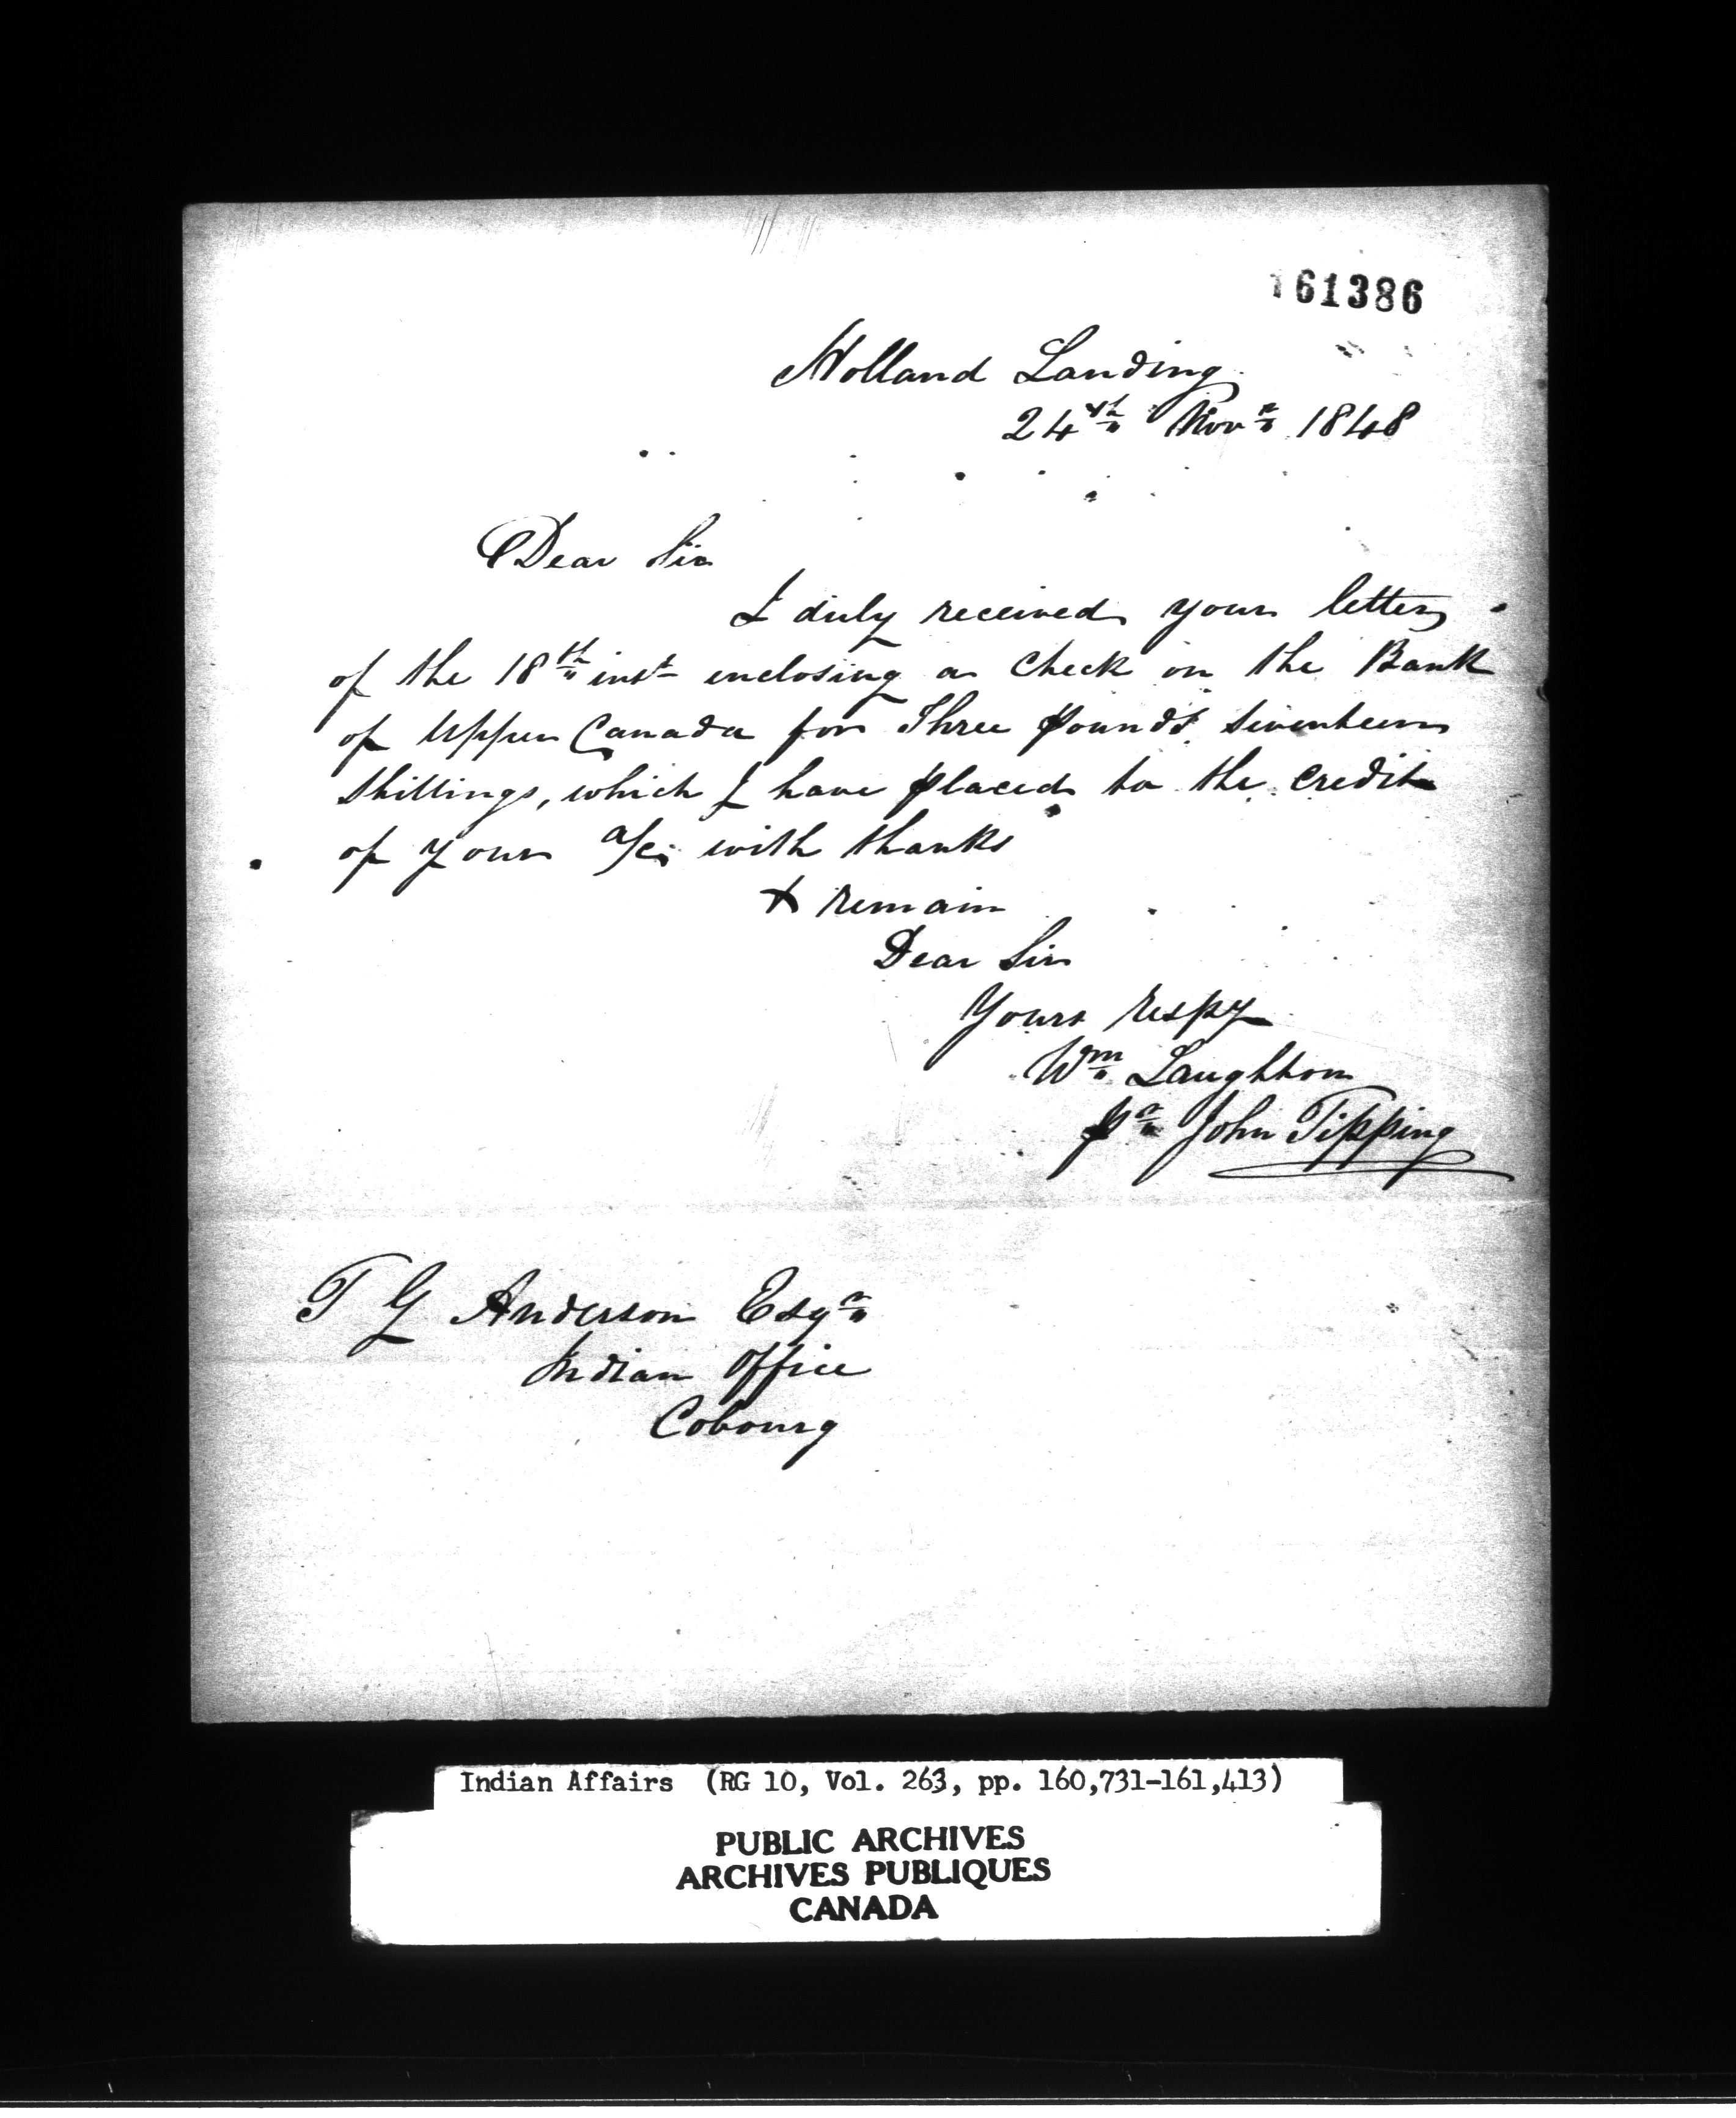 161386
Holland Landing
24th Novr 1848
Dear Sir
I duly received your letter
of the 18th inst enclosing a Check on the Bank
of Upper Canada for Three pounds Seventeen
Shillings, which I have placed to the credit
of your a/c, with thanks
& remain
Dear Sir
Yours respy
Wm Laughton
pr John Tipping
T G Anderson Esqr
Indian Office
Cobourg
Indian Affairs (RG 10, Vol. 263, pp. 160,731-161,413)
PUBLIC ARCHIVES
ARCHIVES PUBLIQUES
CANADA